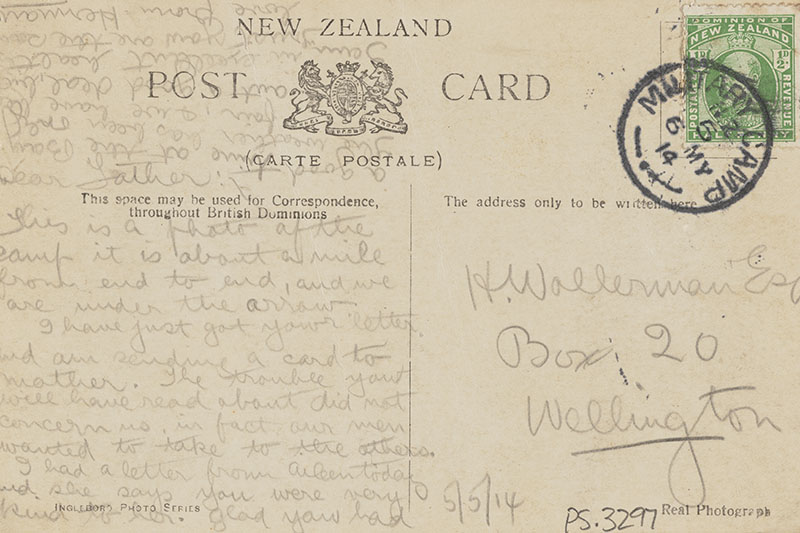 NEW ZEALAND
POST CARD
(CARTE POSTALE)
This space may be used for Correspondence,
throughout British Dominions
The address only to be written here
DOMINION OF
NEW ZEALAND
POSTAGE
REVENUE
½D
½D
MILITARY CAMP
6 MY
14
Dear Father:
This is a photo of the
camp it is about a mile
from end to end, and we
are under the arrow
I have just got your letter.
and am sending a card to
mother. The trouble you
will have read about did not
concern us. in fact our men
wanted to take to the others.
I had a letter from Aileen today
and she says you were very
kind to her. glad you had
a good time at the
the weather has been
fair,
excellent
you are the
love from Herman
H. Wollerman Esq
Box 20
Wellington
5/5/14
PS.3297
INGLEBORO PHOTO SERIES
Real Photograph